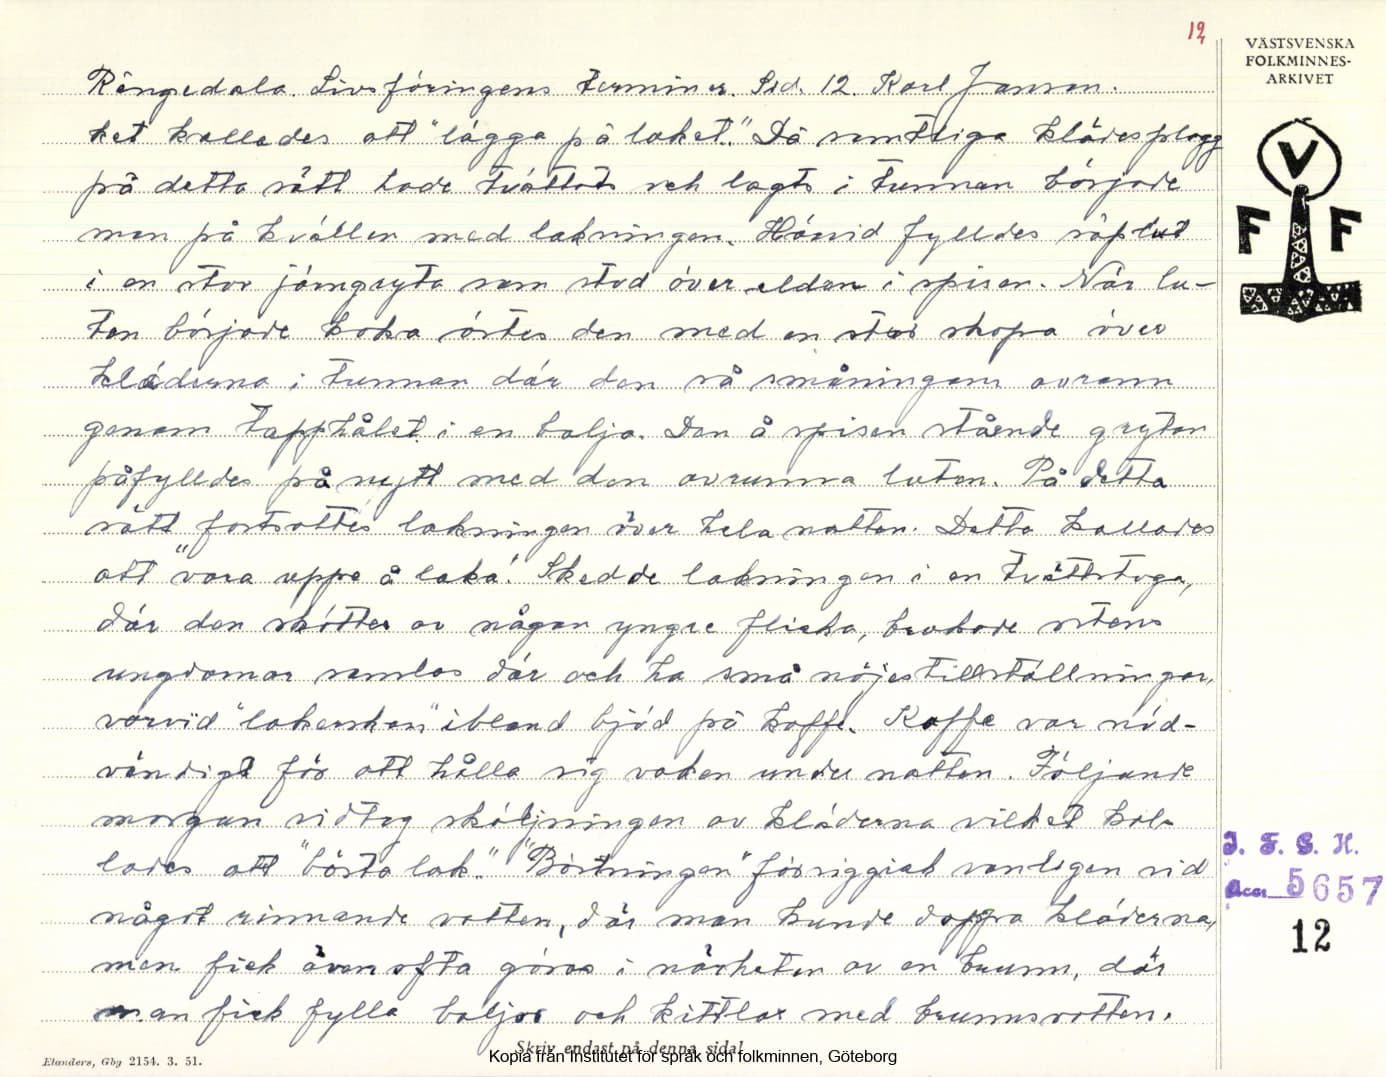 12
VÄSTSVENSKA
FOLKMINNES-
ARKIVET
V
F F
Rängedala. Livsföringens terminer. Sid. 12. Karl Janson.
ket kallades att "lägga på laket." Då samtliga klädesplagg
på detta sätt hade tvättats och lagts i tunnan började
man på kvällen med lakningen. Härvid fylldes såplut
i en stor järngryta som stod över elden i spisen. När lu-
ten började koka östes den med en stor skopa över
kläderna i tunnan där den så småningom avrann
genom tapphålet i en balja. Den å spisen stående grytan
påfylldes på nytt med den avrunna luten. På detta
sätt fortsattes lakningen över hela natten. Detta kallades
att "vara uppe å laka". Skedde lakningen i en tvättstuga,
där den sköttes av någon yngre flicka, brukade ortens
ungdomar samlas där och ha små nöjestillställningar,
varvid "lakerskan" ibland bjöd på kaffe. Kaffe var nöd-
vändigt för att hålla sig vaken under natten. Följande
morgon vidtog sköljningen av kläderna vilket kal-
lades att "börsta lak." "Börstningen" försiggick vanligen vid
något rinnande vatten, där man kunde doppa kläderna,
men fick även ofta göras i närheten av en brunn, där
man fick fylla baljor och kittlar med brunnsvatten.
I. F. G. H.
Acc. 5657
12
Skriv endast på denna sida!
Kopia från Institutet för språk och folkminnen, Göteborg
Elanders, Gbg 2154. 3. 51.